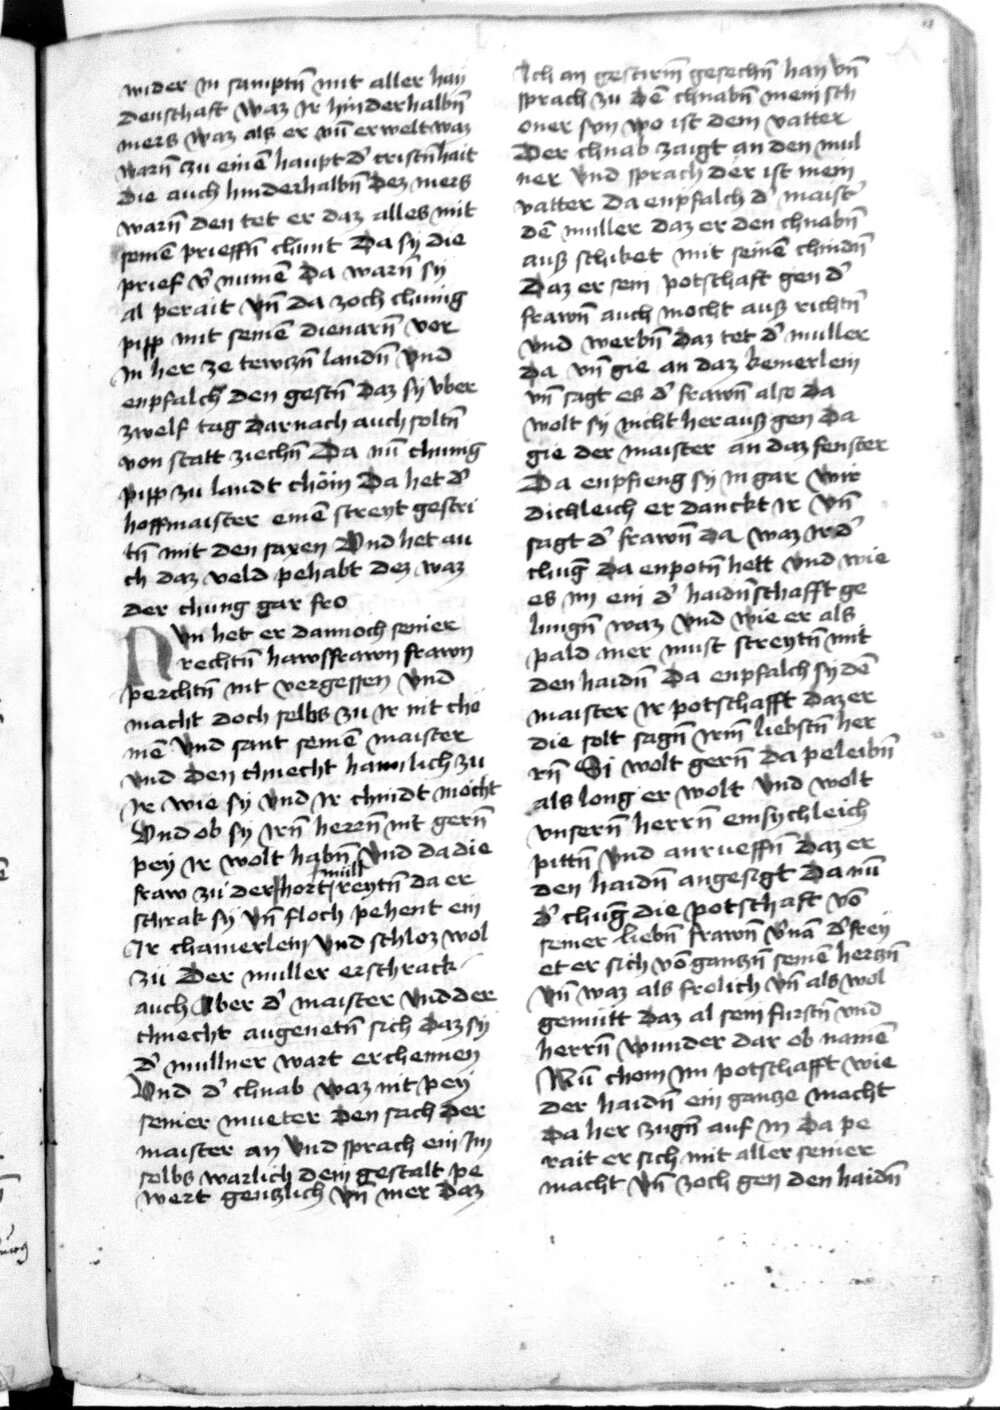 wider in samptn̄ mit aller hai
denschaft waz ir hinderhalbn̄
mers waz als er nū erwelt waz
warn̄ zu einē haupt d' cristn̄hait
die auch hinderhalbn̄ dez mers
warn̄ den tet er daz alles mit
seinē prieffn̄ chunt Da sy die
prief v'numē Da warn̄ sy
al perait vn̄ da zoch chunig
pipp mit seinē dienarn̄ vor
in her ze tewczn̄ landn̄ vnd
enpfalch den gestn̄ daz sy vber
zwelf tag darnach auch soltn̄
von statt ziechn̄ Da nū chunig
pipp zu landt chöm Da het d'
hoffmaister einē streyt gestri
tn̄ mit den saxen Vnd het au
ch daz veld pehabt dez waz
der chung gar fro
Nvn het er dannoch seiner
rechtn̄ hawsfrawn frawn
perchtn̄ nit vergessen vnd
macht doch selbs zu ir nit chö
mē vnd sant seinē maister
vnd den chnecht haimlich zu
ir wie sy vnd ir chindt möcht
Vnd ob sy irn̄ herrn̄ nit gern̄
pey ir wolt habn̄ Vnd da die
müll
fraw zu der hort reytn̄ da er
schrak sy vn̄ floch pehent ein
Ir chamerlein vnd schloz wol
zu Der muller erschrack
auch Aber d' maister vnd der
chnecht augenetn̄ sich daz sy
d' mullner wart erchennen
Vnd d' chnab waz nit pey
seiner mueter den sach der
maister an vnd sprach ein Im
selbs warlich dein gestalt pe
wert genczlich vn̄ mer daz
Ich an gestirm̄ gesechn̄ han vn̄
sprach zu dē chnabn̄ mein sch
oner sun wo ist dem vatter
Der chnab zaigt an den mul
ner vnd sprach der ist mein
vatter da enpfalch d' maist'
dē muller daz er den chnabn̄
auß schiket mit seinē chindn̄
Daz er sein potschaft gen d'
frawn̄ auch mocht auß richtn̄
vnd werbn̄ daz tet d' muller
da vn̄ gie an daz kemerlein
vn̄ sagt es d' frawn̄ also da
wolt sy nicht herauß gen da
gie der maister an daz fenster
Da enpfieng sy in gar wir
dichleich er danckt ir vn̄
sagt d' frawn̄ da waz ir d'
chuḡ da enpotn̄ hett vnd wie
es im ein d' haidn̄schafft ge
lungn̄ waz vnd wie er als
pald mer must streytn̄ mit
den haidn̄ Da enpfalch sy dē
maister ir potschafft daz er
die solt sagn̄ irm̄ liebstn̄ her
rn̄ Si wolt gern̄ da peleibn̄
als long er wolt vnd wolt
vnsern̄ herrn̄ emsychleich
pittn̄ vnd anrueffn̄ daz er
den haidn̄ angesigt Da nū
d' chuḡ die potschaft vō
seiner liebn̄ frawn̄ v'nā d' frey
et er sich vō ganczn̄ seinē herczn̄
vn̄ waz als frolich vn̄ als wol
gemütt daz al sein furstn̄ vnd
herrn̄ wunder dar ob namē
Nū chom im potschafft wie
der haidn̄ ein gancze macht
da her zugn̄ auf in da pe
rait er sich mit aller seiner
macht vn̄ zoch gen den haidn̄